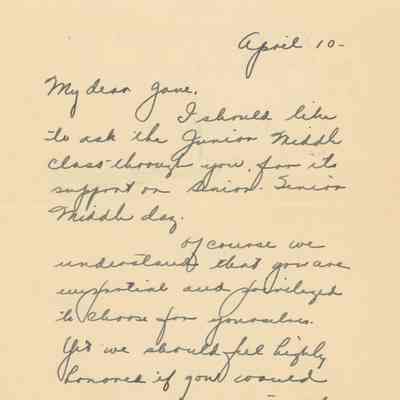 April 10-
My dear Jane,
I should like
to ask the Junior Middle
class through you, for its
support on Senior-Senior
Middle day.
Of course we
understand that you are
impartial and privileged
to choose for yourselves.
Yet we should feel highly
honored if you would